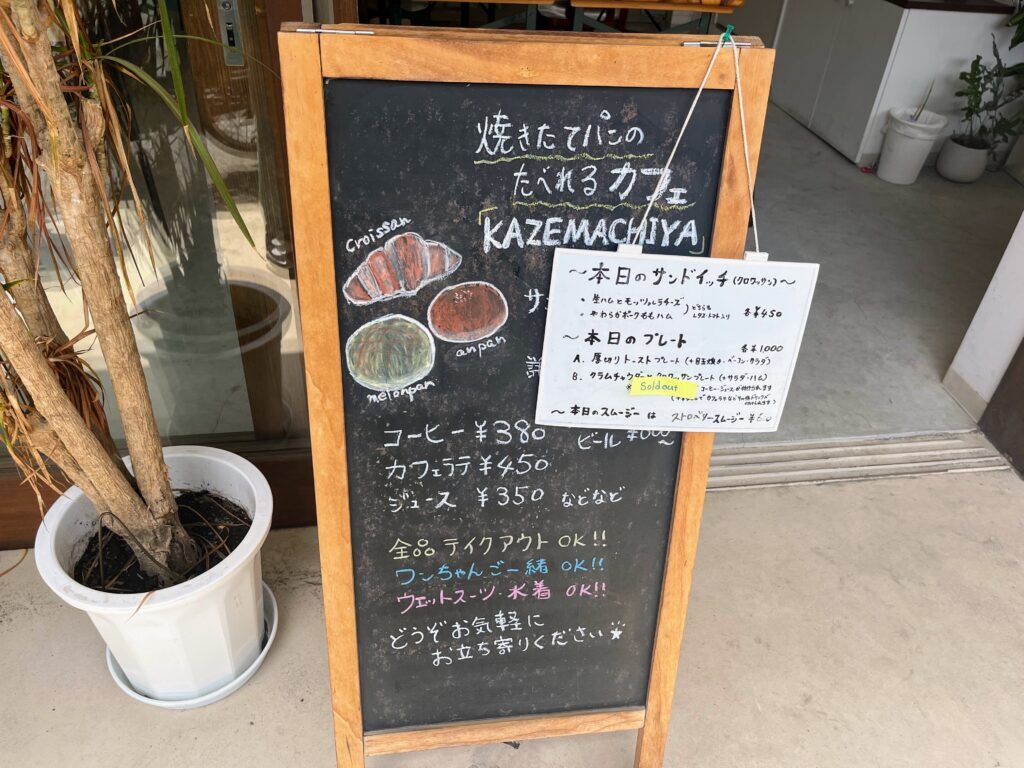 焼きたてパンの
たべれるカフェ
「KAZEMACHIYA」
croissan
anpan
melonpan
~本日のサンドイッチ(クロワッサン)~
・生ハムとモッツァレラチーズ
・やわらかポークももハム
どちらも
レタス・トマト入り
各¥450
~本日のプレート
各¥1,000
A. 厚切りトーストプレート(+目玉焼き・ベーコン・サラダ)
B. クラムチャウダーとクロワッサンプレート(+サラダ・ハム)
Sold out
コーヒー・ジュースが付けられます
~本日のスムージーは ストロベリースムージー
コーヒー ¥380
ビール
カフェラテ ¥450
ジュース ¥350 などなど
全品テイクアウトOK!!
ワンちゃんご一緒OK!!
ウェットスーツ・水着OK!!
どうぞお気軽に
お立ち寄りください☆